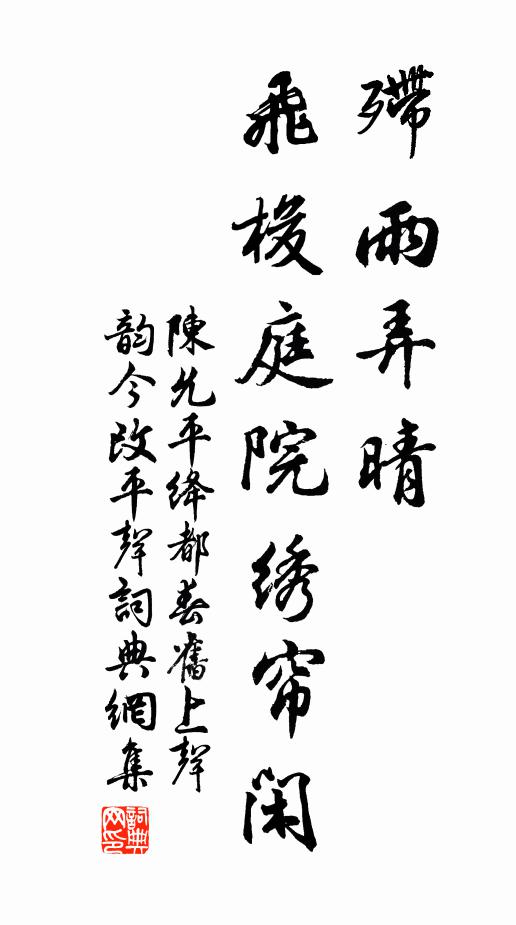 殢雨弄晴
飛梭庭院綉帘閑
陳允平绛都春舊上聲
韵今改平聲詞典網集
詞典网印